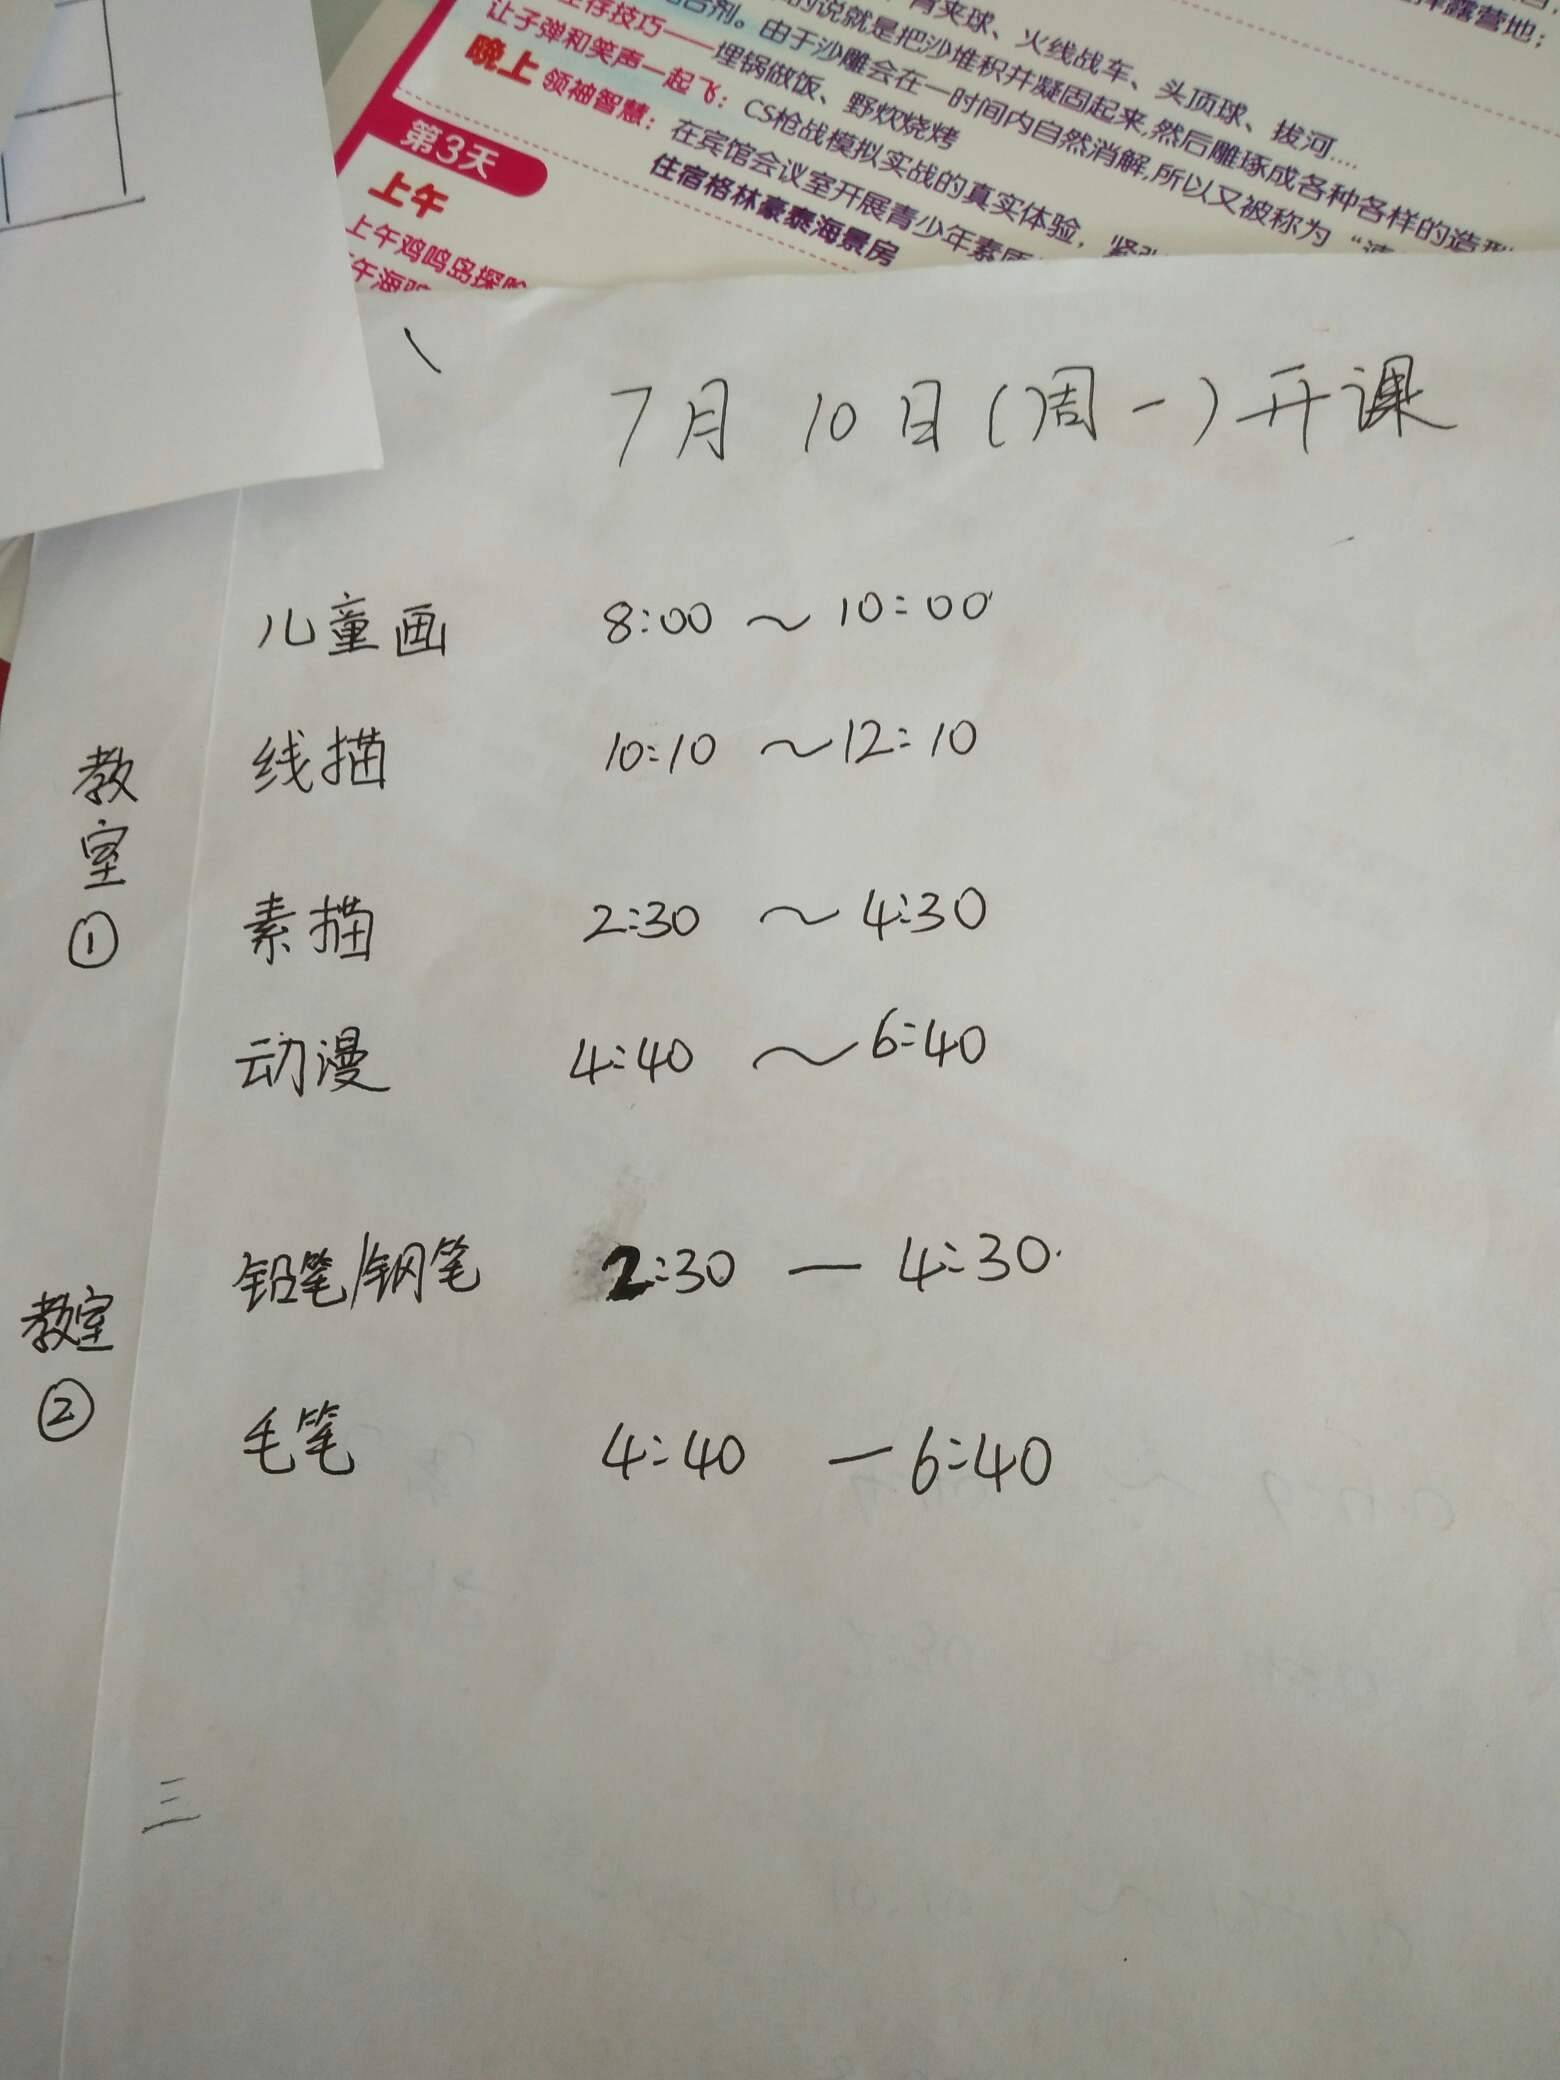 青夹球、火线战车、头顶球、拔河....
的说就是把沙堆积并凝固起来,然后雕琢成各种各样的造型
合剂。由于沙雕会在一时间内自然消解,所以又被称为“速
生存技巧——埋锅做饭、野炊烧烤
让子弹和笑声一起飞：CS枪战模拟实战的真实体验，紧张
晚上 领袖智慧：在宾馆会议室开展青少年素质
住宿格林豪泰海景房
露营地；
第3天
上午
上午鸡鸣岛探险
7月10日(周一)开课
儿童画 8:00 ～ 10:00
线描 10:10 ～ 12:10
教室①
素描 2:30 ～ 4:30
动漫 4:40 ～ 6:40
铅笔/钢笔 2:30 — 4:30
教室②
毛笔 4:40 — 6:40
三